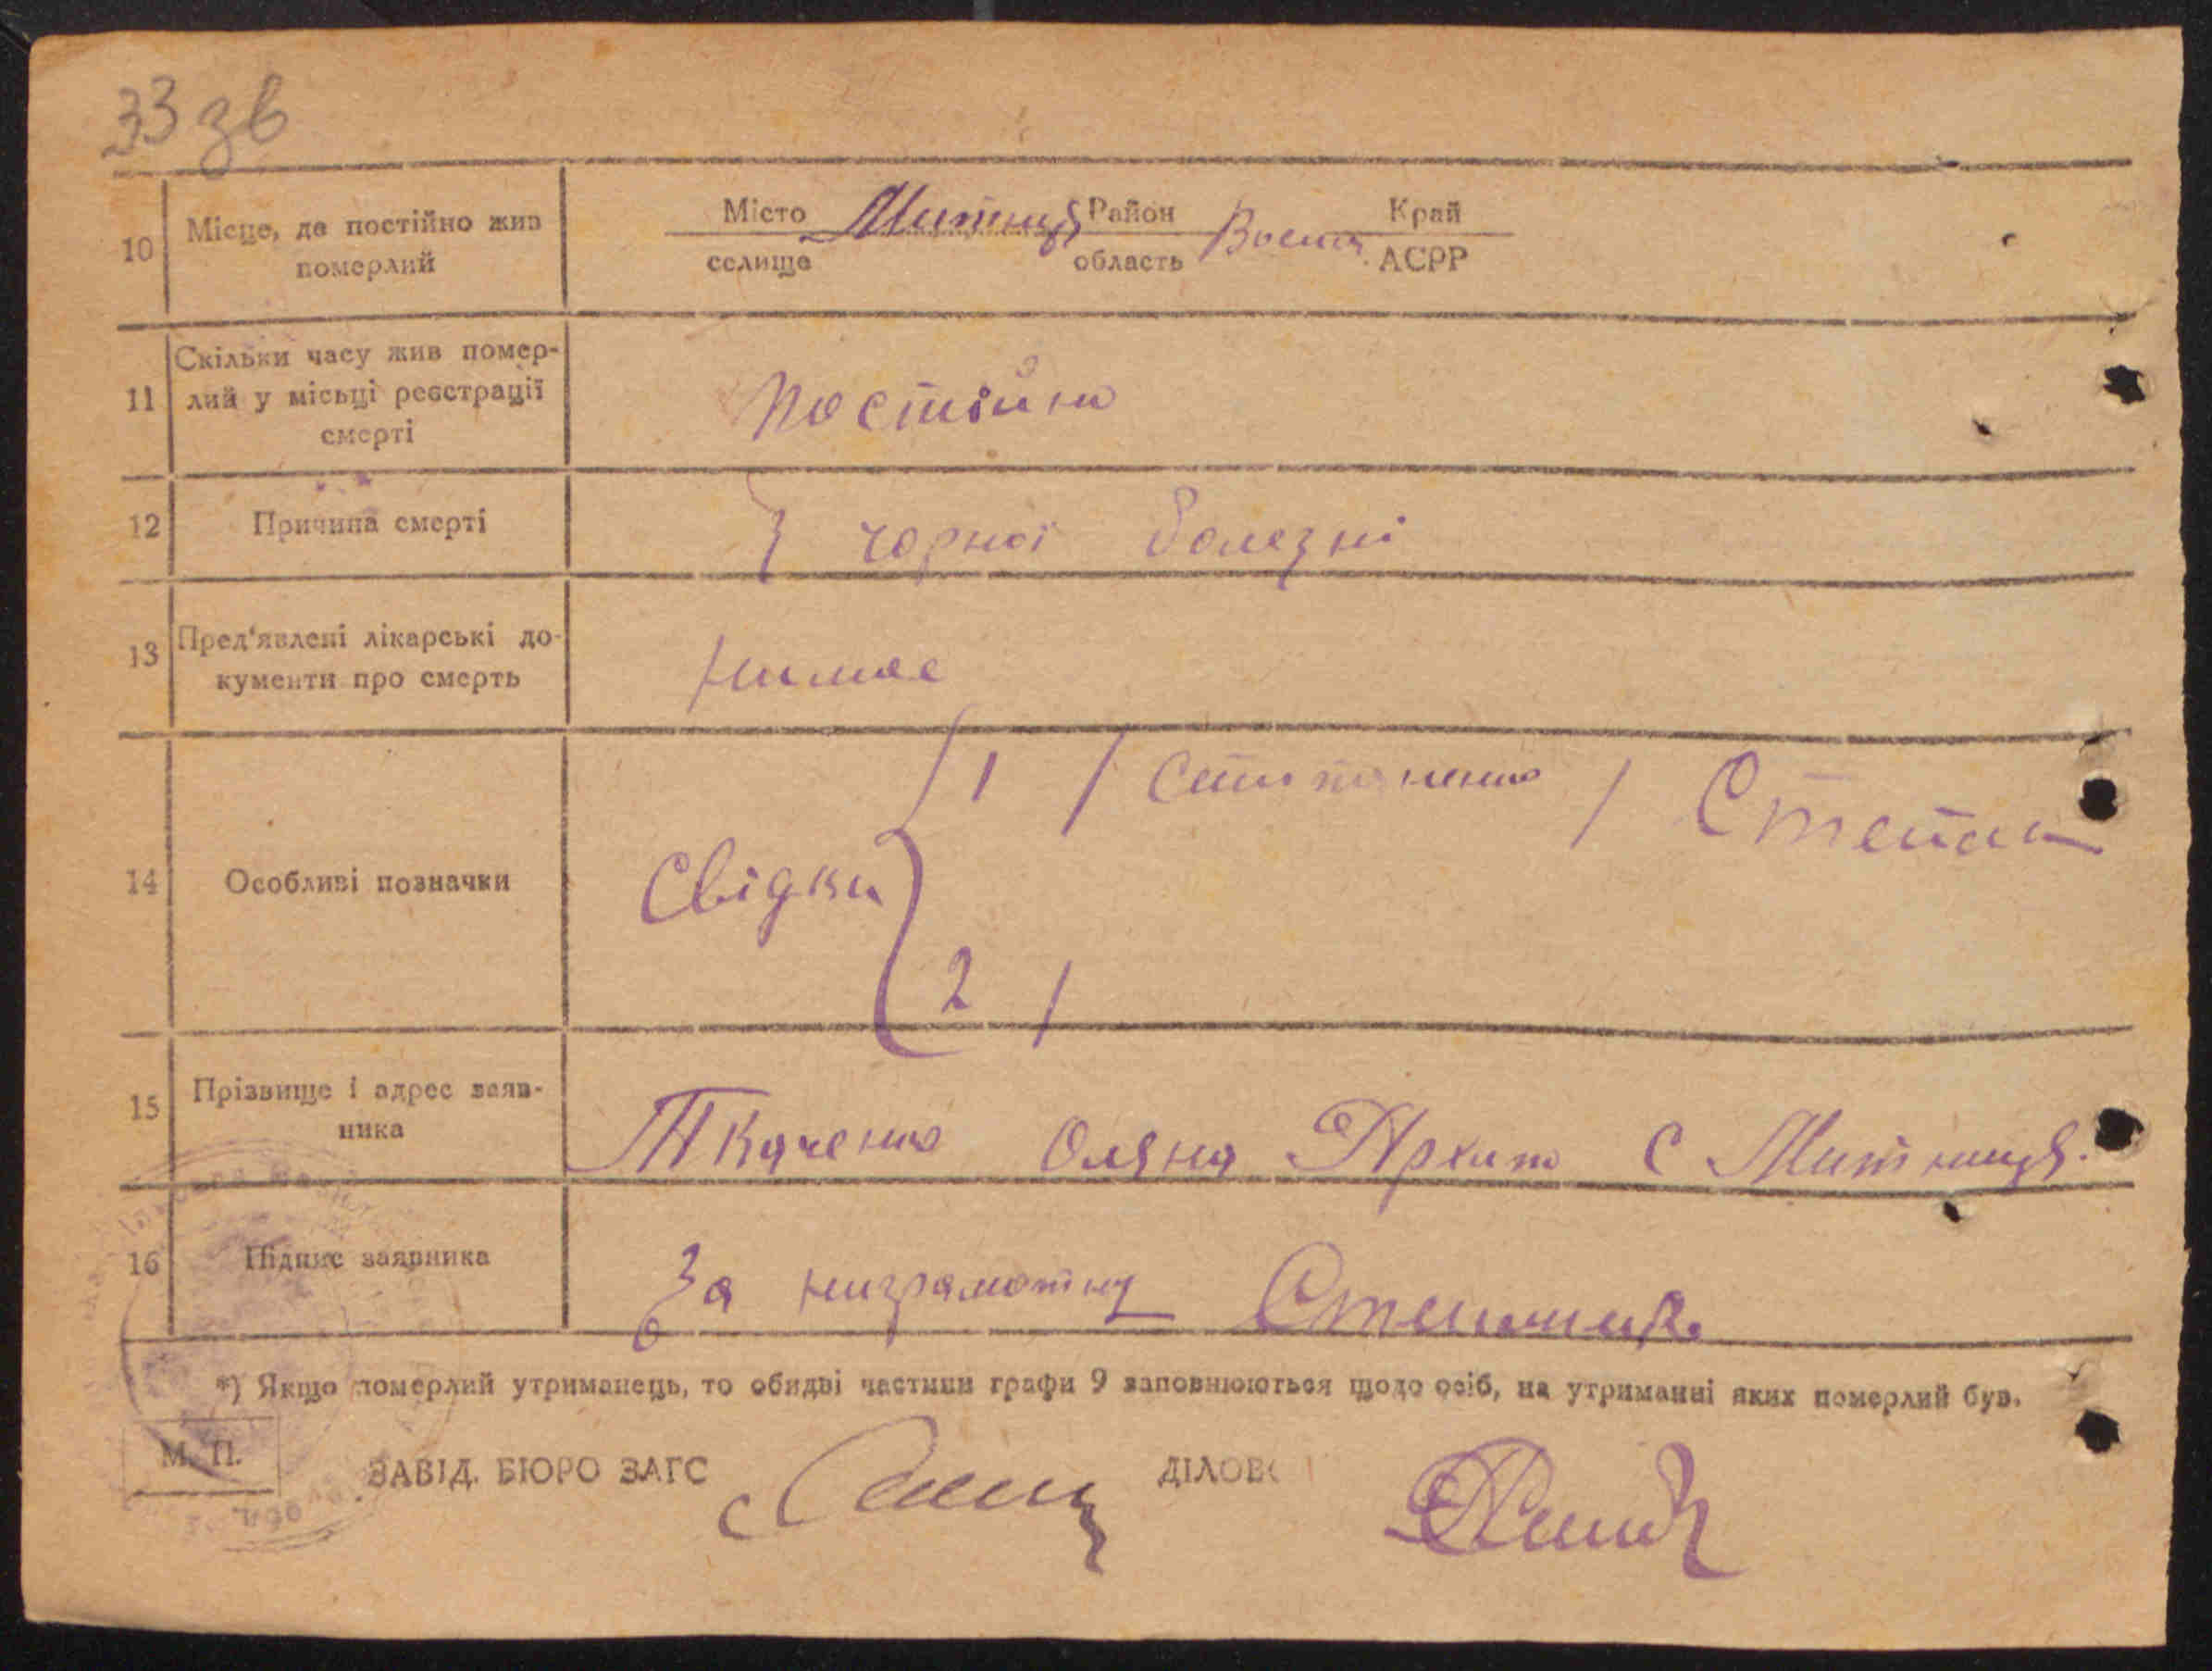 33 зв
10 Місце, де постійно жив померлий
Місто селище Митниця Район область Край АСРР
11 Скільки часу жив помер-
лий у місьці реєстрації
смерті
Постійно
12 Причина смерті
З чорної болезні
13 Пред'явлені лікарські до-
кументи про смерть
Нимає
14 Особливі позначки
Свідки
1 / / Степан
2 /
15 Прізвище і адрес заяв-
ника
Ткаченко Оляна Архип с Митниця.
16 Підпис заявника
За ниграмотну
*) Якщо померлий утриманець, то обидві частини графи 9 заповнюються щодо осіб, на утриманні яких померлий був.
М. П.
ЗАВІД. БЮРО ЗАГС
ДІЛОВ